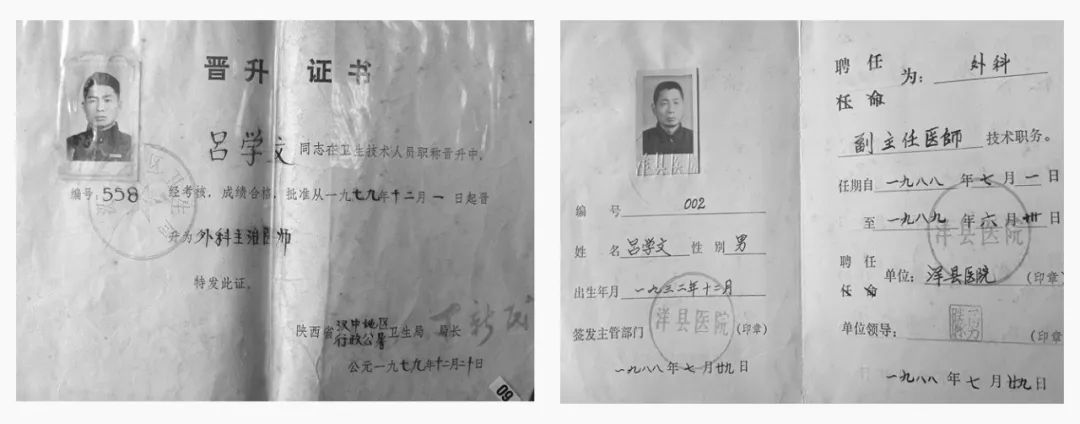 晋升证书
吕学文同志在卫生技术人员职称晋升中,
编号:558 经考核,成绩合格,批准从一九七九年十二月一日起晋
升为外科主治医师
特发此证。
陕西省汉中地区行政公署卫生局 局长
公元一九七九年十二月二十日
09
编 号 002
姓 名 吕学文 性 别 男
出生年月 一九三二年十二月
签发主管部门 洋县医院 (印章)
一九八八年七月廿九日
洋县医
聘任
任命 为: 外科
副主任医师 技术职务。
任期自 一九八八 年七月一日
至 一九八九 年六月卅日
洋县医院
聘任
任命 单位: 洋县医院 (印章)
单位领导: (印章)
一九八八年七月廿九日